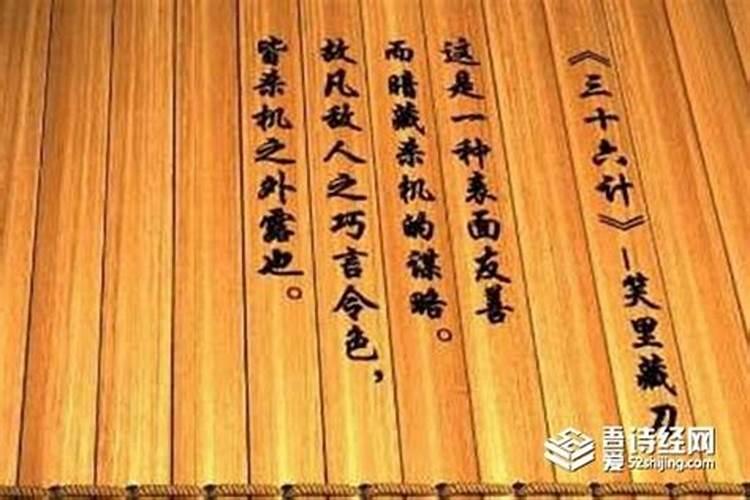 《三十六计》-笑里藏刀
这是一种表面友善
而暗藏杀机的谋略。
故凡敌人之巧言令色，
皆杀机之外露也。
吾爱诗经网
52shijing.com